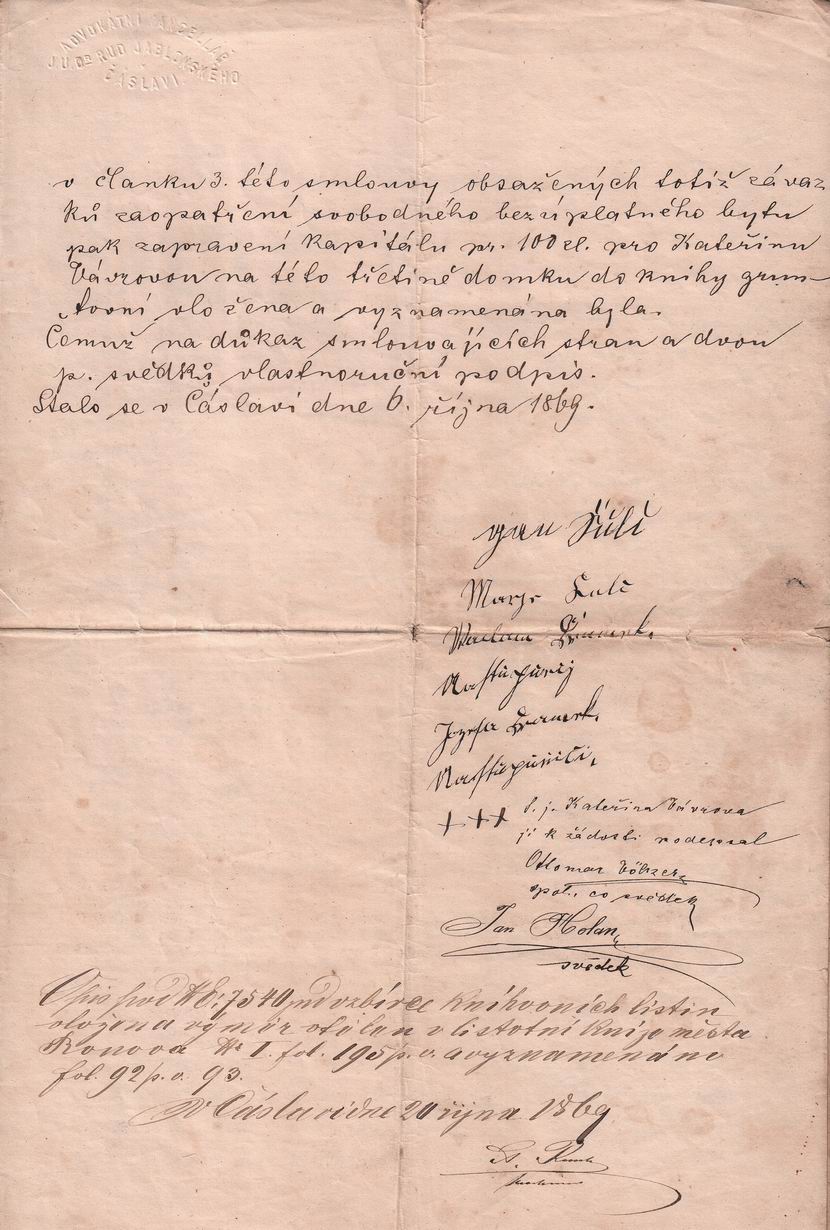 ADVOKÁTNÍ KANCELLÁŘ
JUDR RUD JABLONSKÉHO
ČÁSLAVI
v članku 3. této smlouvy obsažených totiž závaz
ků zaopatření svobodného bezúplatného bytu
pak zapravení kapitálu pr. 100 zl. pro Kateřinu
Vávrovou na této třetině domku do knihy grun-
tovní vložena a vyznamenána byla.
Čemuž na důkaz smlouvajících stran a dvou
p. svědků vlastnoruční podpis.
Stalo se v Čáslavi dne 6. října 1869.
Jan Šulc
Marye Šulc
Waclaw
Josefa
+++ Kateřina Vávrova
ji k žádosti podepsal
Ottomar
spol. co svědek
Jan Holan
svědek
Opis pod No: 7540 ve sbírce knihovních listin
vložena v listovní knize města
Ronova No I. fol. 195 p. v. a vyznamenáno
fol. 92 p. v. 93.
V Čáslavi dne 20 října 1869